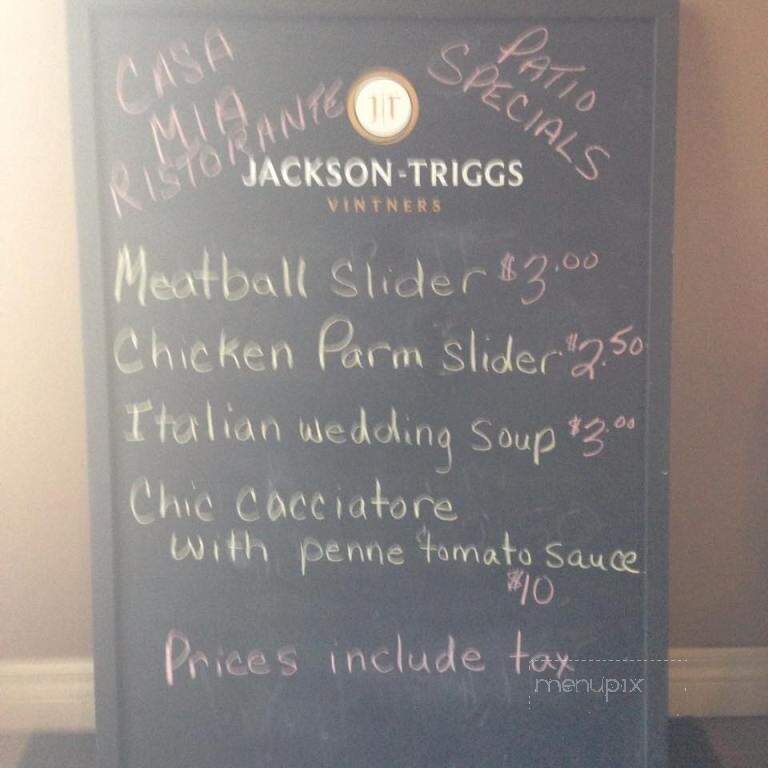 CASA
MIA
RISTORANTE
PATIO
SPECIALS
JT
JACKSON-TRIGGS
VINTNERS
Meatball Slider $3.00
Chicken Parm Slider $2.50
Italian wedding Soup $3.00
Chic Cacciatore
with penne tomato sauce
$10
Prices include tax
menupix